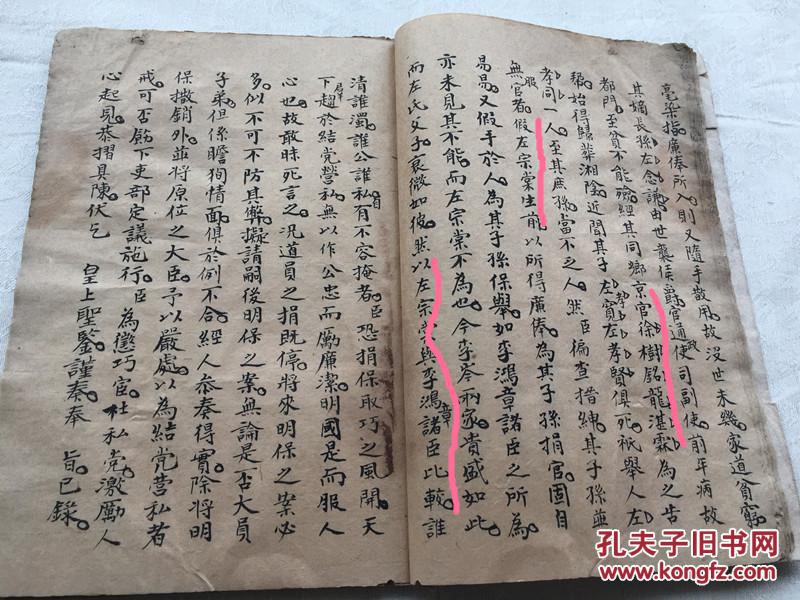 毫染指廉俸所入則又隨手散用故沒世未幾家道貧窮
其嫡長孫左念謙由世襲侯爵官通政使司副使前年病故
都門至貧不能殮經其同鄉京官徐樹銘龍湛霖為之告
幫始得歸葬湘陰近聞其子左孝寬左孝賢俱死祇舉人左
孝同一人至其庶孫當不乏人然臣徧查搢紳其子孫並
無服官者假左宗棠生前以所得廉俸為其子孫捐官固自
易易又假手於人為其子孫保舉如李鴻章諸臣之所為
亦未見其不能而左宗棠不為也今李岑兩家貴盛如此
而左氏父子衰微如彼然以左宗棠與李鴻章諸臣比較誰
清誰濁誰公誰私自有不容掩者臣恐捐保取巧之風開天
下群趨於結党營私無以作公忠而厲廉潔明國是而服人
心也故敢昧死言之況道員之捐既停將來明保之案必
多似不可不防其弊擬請嗣後明保之案無論是否大員
子弟但係瞻狥情面俱於例不合經人叅奏得實除將明
保撤銷外並將原位之大臣予以嚴處以為結党营私者
戒可否飭下吏部定議施行臣為懲巧宦杜私党激勵人
心起見恭摺具陳伏乞皇上聖鑒謹奏奉旨已錄
孔夫子旧书网
www.kongfz.com